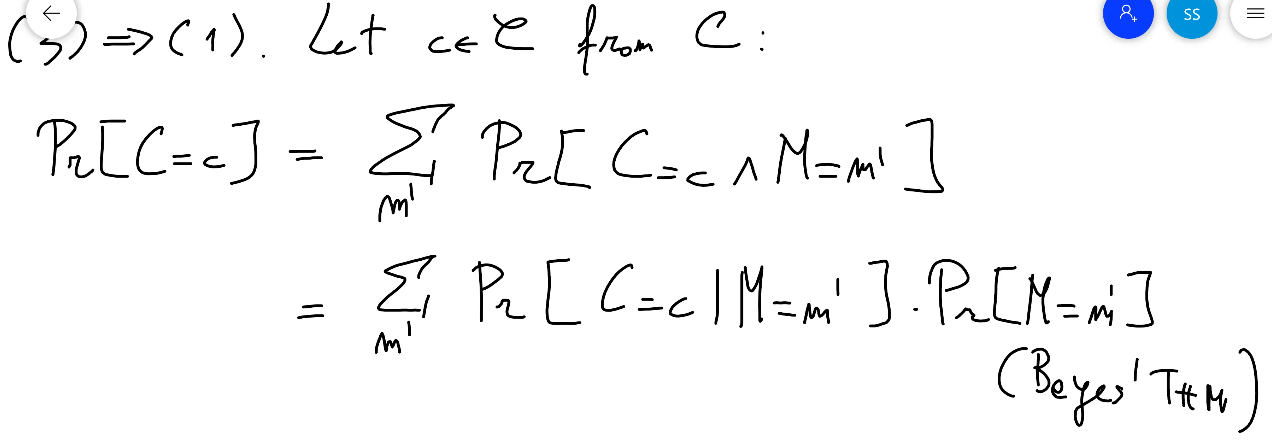 SS
(3) ⇒ (1). Let c ∈ 𝒞 from C:
Pr[C=c] = ∑ Pr[C=c ∧ M=m']
m'
= ∑ Pr[C=c | M=m'] · Pr[M=m']
m'
(Beyes' THM)